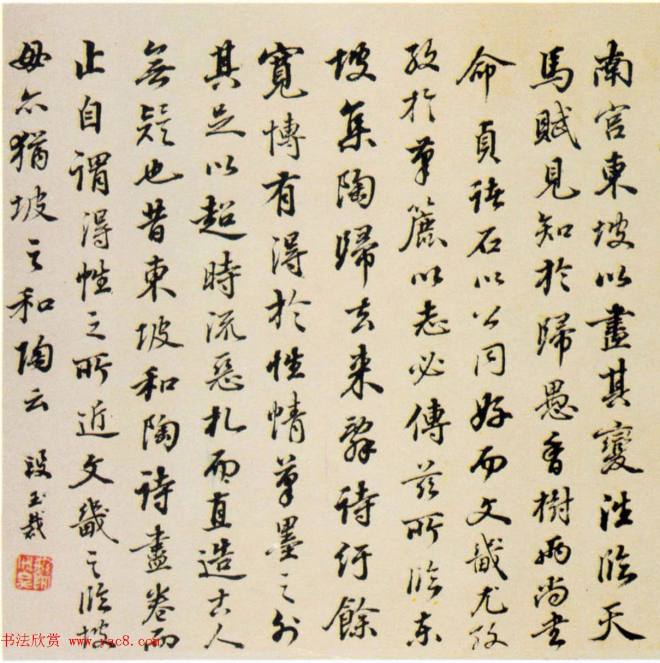 南宫東坡以盡其變洼臨天
馬賦見知於歸愚香樹兩尚書
命貞珉石以公同好而文畿尤孜
孜於筆簏以志必傳茲所臨東
坡集陶歸去来辭詩紆餘
寬博有淂於性情筆墨之外
其足以超時流惡札而直造古人
無疑也昔東坡和陶詩盡卷而
止自謂淂性之所近文畿之臨坡
毋亦猶坡之和陶云
段玉裁
书法欣赏 www.yac8.com